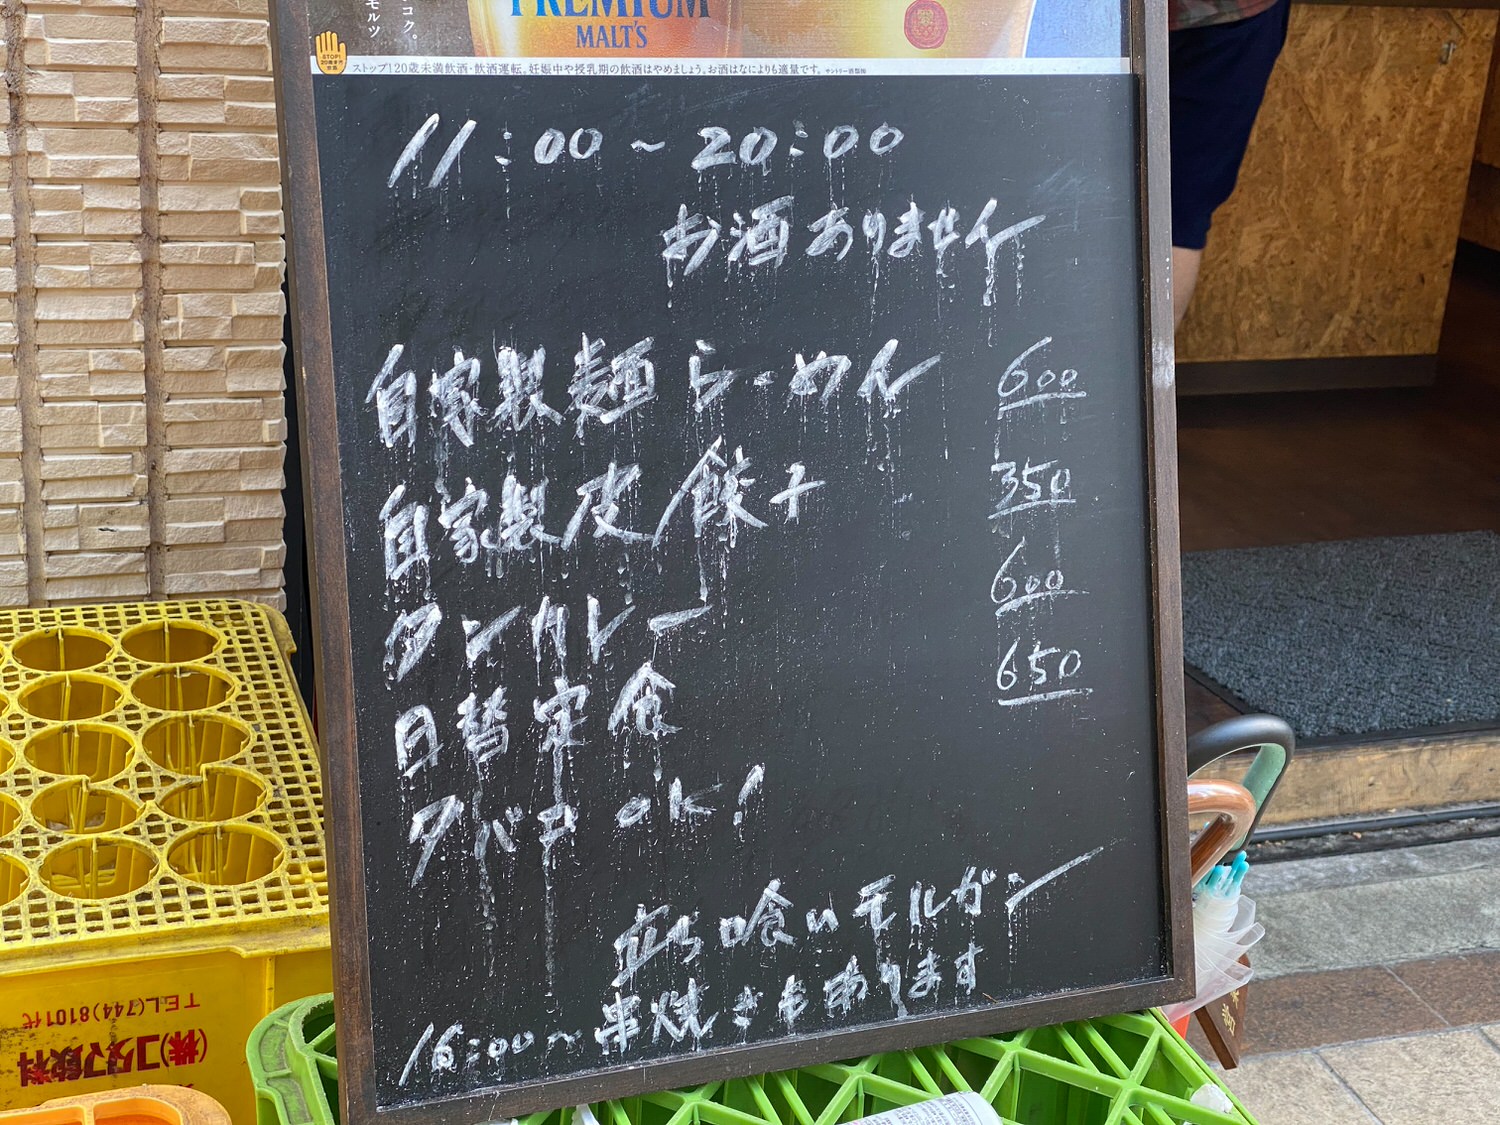 コク。
モルツ
PREMIUM
MALT'S
STOP!
ストップ!20歳未満飲酒・飲酒運転。妊娠中や授乳期の飲酒はやめましょう。お酒はなによりも適量です。
11:00~20:00
お酒ありません
自家製麺らーめん 600
自家製皮餃子 350
タンカレー 600
日替定食 650
タバコ OK!
立ち喰いモルガン
16:00~串焼きもあります
TEL(744)8101代
(株)コダマ飲料